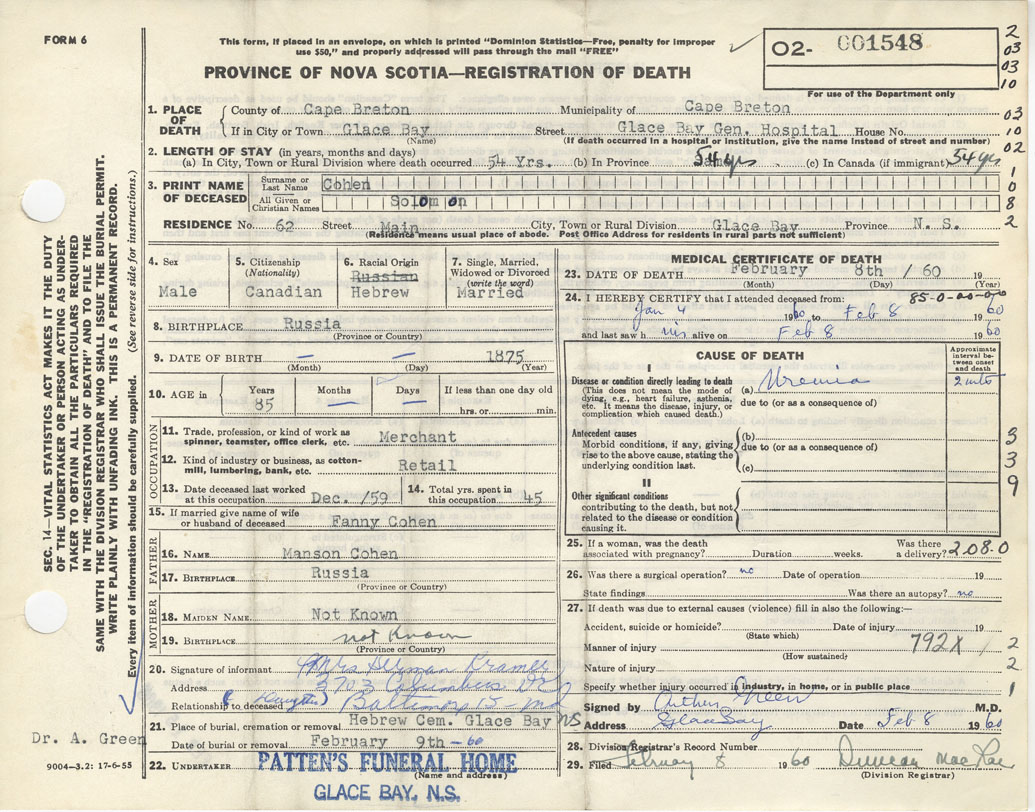 FORM 6
This form, if placed in an envelope, on which is printed "Dominion Statistics—Free, penalty for improper
use $50," and properly addressed will pass through the mail "FREE"
O2- 001548
For use of the Department only
PROVINCE OF NOVA SCOTIA—REGISTRATION OF DEATH
2
03
03
10
03
10
02
1
0
8
2
1. PLACE OF DEATH
County of Cape Breton Municipality of Cape Breton
If in City or Town Glace Bay Street Glace Bay Gen. Hospital House No.
(Name) (If death occurred in a hospital or institution, give the name instead of street and number)
2. LENGTH OF STAY (in years, months and days)
(a) In City, Town or Rural Division where death occurred 54 Yrs. (b) In Province 54 yrs (c) In Canada (if immigrant) 54 yrs
3. PRINT NAME OF DECEASED
Surname or Last Name Cohen
All Given or Christian Names Solomon
RESIDENCE No. 62 Street Main City, Town or Rural Division Glace Bay Province N. S.
(Residence means usual place of abode. Post Office Address for residents in rural parts not sufficient)
4. Sex
Male
5. Citizenship
(Nationality)
Canadian
6. Racial Origin
Russian
Hebrew
7. Single, Married,
Widowed or Divorced
(write the word)
Married
8. BIRTHPLACE Russia
(Province or Country)
9. DATE OF BIRTH — — 1875
(Month) (Day) (Year)
10. AGE in
Years Months Days If less than one day old
85 — — hrs. or min.
OCCUPATION
11. Trade, profession, or kind of work as
spinner, teamster, office clerk, etc. Merchant
12. Kind of industry or business, as cotton-
mill, lumbering, bank, etc. Retail
13. Date deceased last worked
at this occupation Dec. /59
14. Total yrs. spent in
this occupation 45
15. If married give name of wife
or husband of deceased Fanny Cohen
FATHER
16. NAME Manson Cohen
17. BIRTHPLACE Russia
(Province or Country)
MOTHER
18. MAIDEN NAME Not Known
19. BIRTHPLACE not Known
(Province or Country)
20. Signature of informant Mrs Herman Kramer
Address 3703 Columbus
Relationship to deceased (Daughter) Baltimore 15 - Md
21. Place of burial, cremation or removal Hebrew Cem. Glace Bay NS
Date of burial or removal February 9th - 60
22. UNDERTAKER PATTEN'S FUNERAL HOME
(Name and address)
GLACE BAY, N.S.
MEDICAL CERTIFICATE OF DEATH
23. DATE OF DEATH February 8th / 60 19
(Month) (Day) (Year)
24. I HEREBY CERTIFY that I attended deceased from: 85-0-00-
Jan 4 1960 to Feb 8 1960
and last saw h im alive on Feb 8 1960
CAUSE OF DEATH
Approximate
interval be-
tween onset
and death
I
Disease or condition directly leading to death
(This does not mean the mode of
dying, e.g., heart failure, asthenia,
etc. It means the disease, injury, or
complication which caused death.)
(a) Uremia
due to (or as a consequence of)
Antecedent causes
Morbid conditions, if any, giving
rise to the above cause, stating the
underlying condition last.
(b)
due to (or as a consequence of)
(c)
II
Other significant conditions
contributing to the death, but not
related to the disease or condition
causing it.
3
3
9
25. If a woman, was the death
associated with pregnancy? Duration weeks.
Was there
a delivery? 208.0
26. Was there a surgical operation? no Date of operation 19
State findings Was there an autopsy? no
27. If death was due to external causes (violence) fill in also the following:—
Accident, suicide or homicide? Date of injury 19
(State which)
Manner of injury 792X / 2
(How sustained)
Nature of injury 2
Specify whether injury occurred in industry, in home, or in public place 1
Signed by Arthur Green M.D.
Address Glace Bay Date Feb 8 1960
28. Division Registrar's Record Number
29. Filed February 8 1960 Duncan MacRae
(Division Registrar)
SEC. 14—VITAL STATISTICS ACT MAKES IT THE DUTY
OF THE UNDERTAKER OR PERSON ACTING AS UNDER-
TAKER TO OBTAIN ALL THE PARTICULARS REQUIRED
IN THE "REGISTRATION OF DEATH" AND TO FILE THE
SAME WITH THE DIVISION REGISTRAR WHO SHALL ISSUE THE BURIAL PERMIT.
WRITE PLAINLY WITH UNFADING INK. THIS IS A PERMANENT RECORD.
Every item of information should be carefully supplied. (See reverse side for instructions.)
Dr. A. Green
9004—3.2: 17-6-55